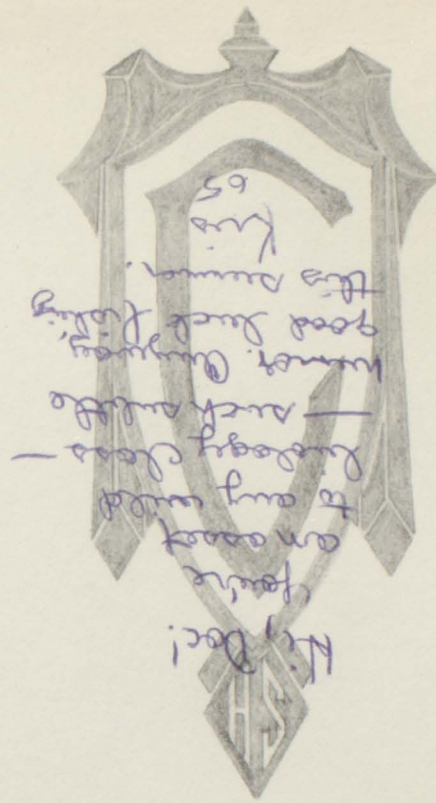 Hi, Doc!
You're
an asset
to any wild
biology class —
— such subtle
humor. Anyway,
good luck fishing
this summer.
Kris
65
C
HS